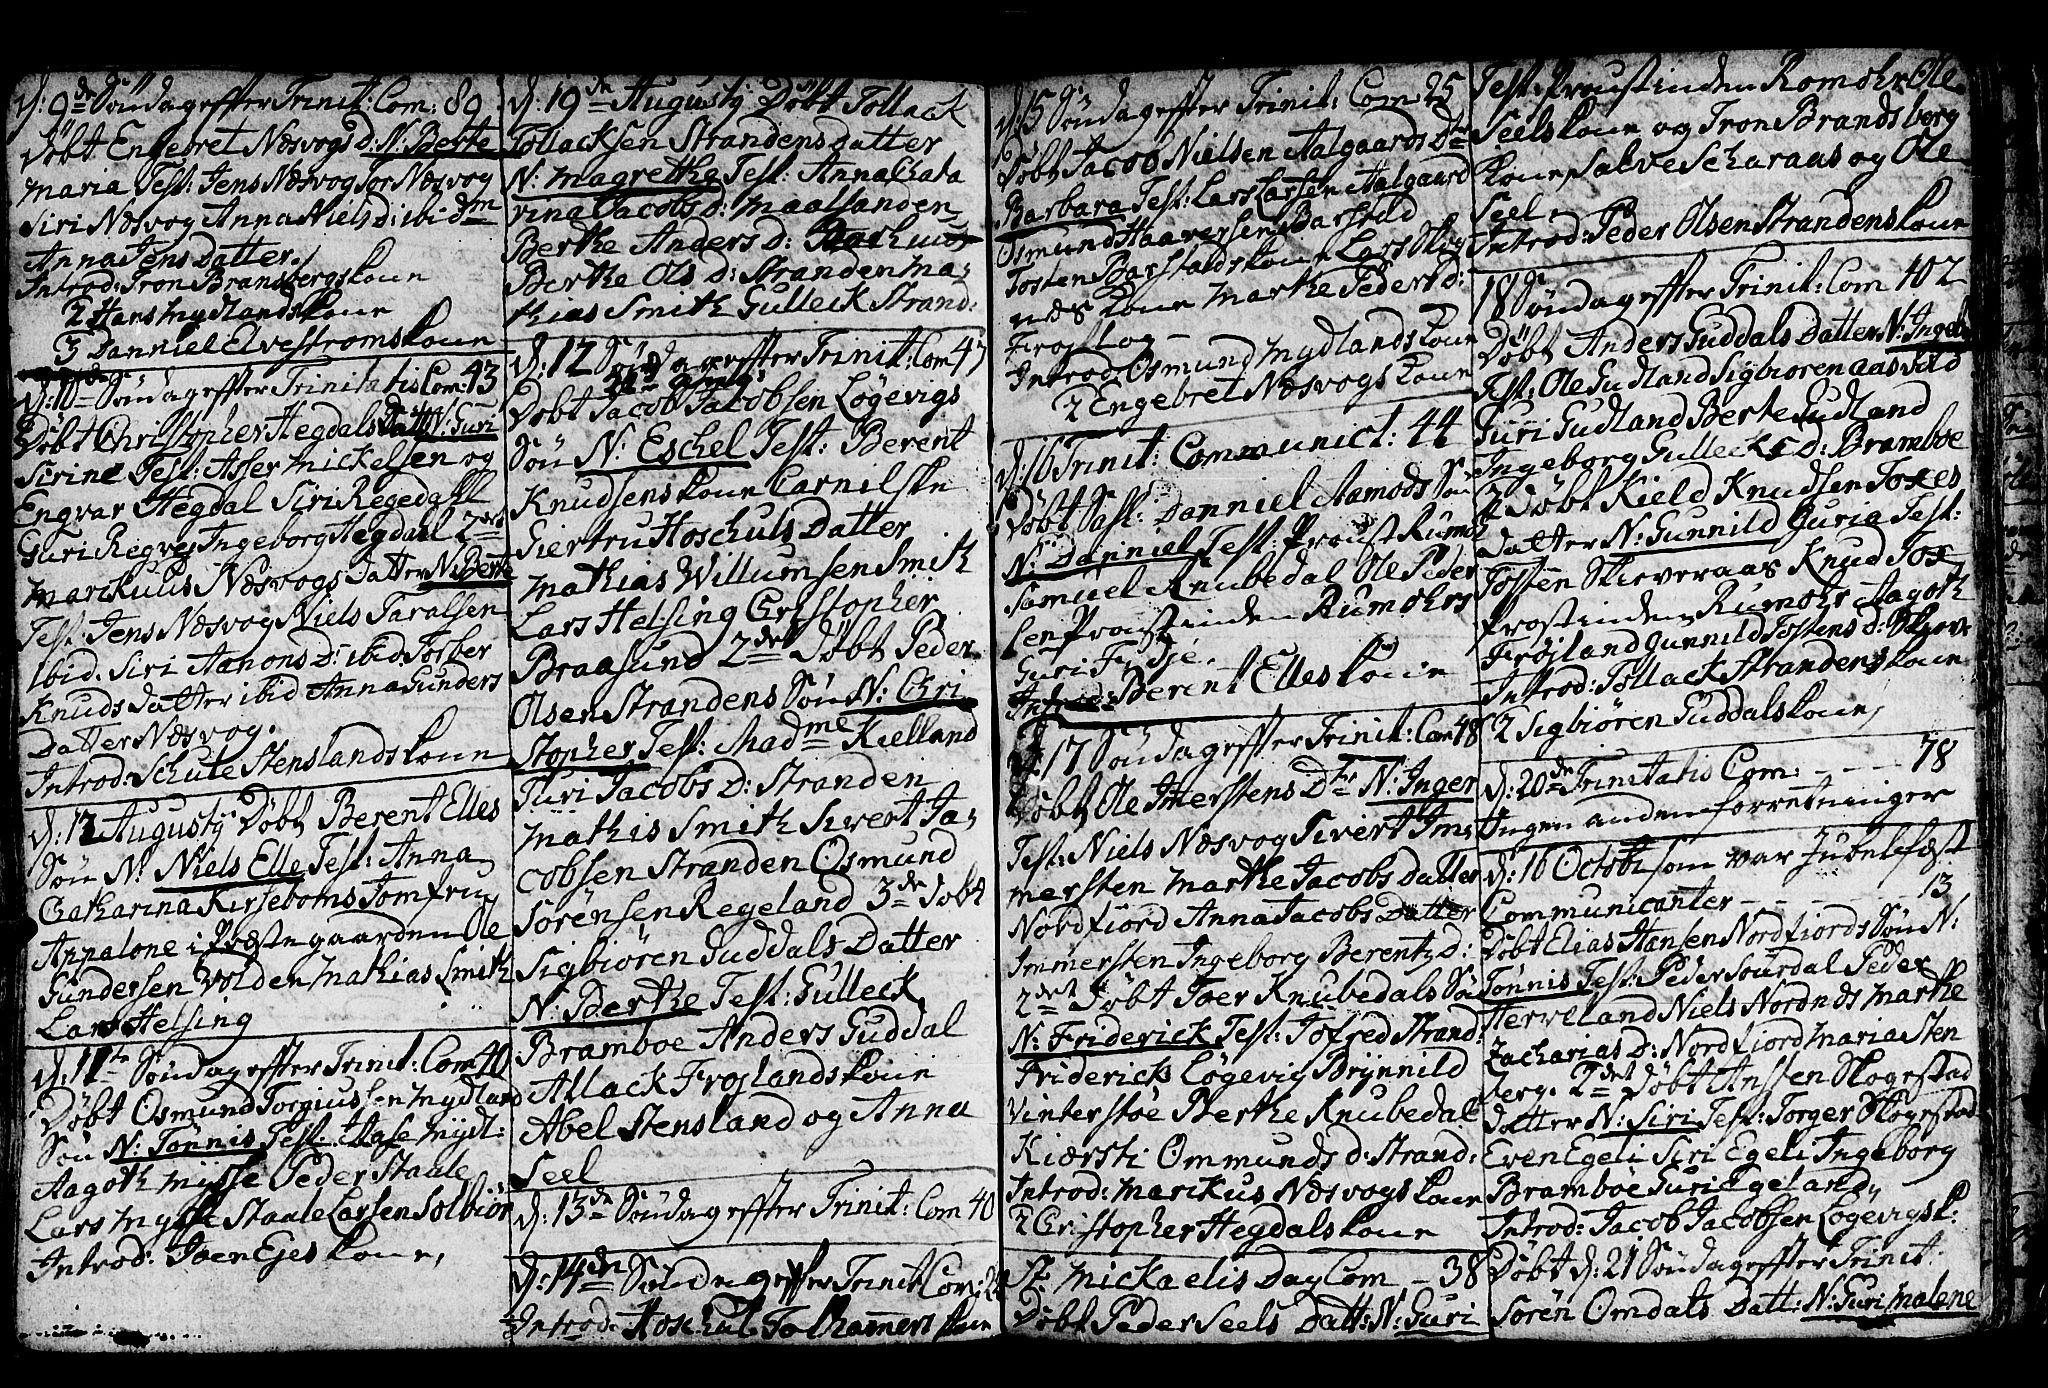 d: 9de Söndag effter Trinit: Com: 89
Döbt Engebret Næsvogs d: N: Berte
Maria Test: Jens Næsvog Tor Næsvog
Siri Næsvog Anna Niels d: ibidm
Anna Jens Datter.
Introd: Tron Brandsbergs kone
2 Hans Mydlands kone
3 Danniel Elvestroms kone
d: 10de Söndag effter Trinitatis Com: 43
Döbt Christopher Hegdals Datt: N: Guri
Sirine Test: Asser Mickelsen og
Engvar Hegdal Siri Regedahl
Guri Ingeborg Hegdahl 2det
Marckuus Næsvogs Datter N: Berte
Test: Jens Næsvog Niels Taralsen
ibid. Siri Aanons D: ibid. Torber
Knuds datter ibid Anna Gunders
Datter Næsvog.
Introd: Schute Stenslands kone
d: 12 Augusty Döbt Berent Elles
Sön N: Niels Elle Test: Anna
Chatharina Kirseboms Jomfru
Appalone i Præstegaarden Ole
Gundersen Volden Mathias Smith
Lars Helsing
d: 11te Söndag effter Trinit: Com 40
Döbt Osmund Torgiussen Mydland
Sön N: Tönnis Test: Aase Mydl:
Aagoth Mysse Peder Staale
Lars Mysse Staale Larsen Solbiör
Introd: Joen Ejes kone,
d: 19de Augusty Döbt Tollack
Tollacksen Strandens Datter
N: Magrethe Test: Anna Chata
rina Jacobs d: Maalsanden
Berthe Anders d:
Berthe Ols d: Stranden Ma,
thias Smith Gulleck Strand:
d: 12 Söndag effter Trinit: Com 47
Döbt Jacob Jacobsen Lögevigs
Sön N: Eschel Test: Berent
Knudsens kone Carnilske
Giertru Hoschuls Datter
Mathias Willumsen Smith
Lars Helsing Christopher
Braasund 2det Döbt Peder
Olsen Strandens Sön N: Chri
stopher Test: Madme Kielland
Turi Jacobs D: Stranden
Mathis Smith Sivert Ja,
cobsen Stranden Osmund
Sörensen Regeland 3de Döbt
Sigbiören Guddals Datter
N: Berthe Test: Gulleck
Bramboe Anders Guddal
Atlack Frøjlands kone
Abel Stensland og Anna
Seel
d: 13de Söndag effter Trinit: Com 40
d: 14de Söndag effter Trinit: Com: 24
Introd: Hoschul Folhamers kone
d: 15 Söndag effter Trinit: Com 25
Döbt Jacob Nielsen Aalgaards Dtr
Barbara Test: Lars Larsen Aalgaard
Osmund Haaversen Barstad
Tosten Barstads kone Lars Skig
nes kone Marthe Peders d:
Introd: Osmund Mydlands kone
2 Engebret Næsvogs kone
d: 16 Trinit: Communict: 44
Döbt Sal: Danniel Aamods Sön
N: Danniel Test: Proust Rumohr
Samuel Knubedal Ole Peder
sen Proustinden Rumohrs
Guri Fidje.
Introd: Berent Elles kone
d: 17 Söndag effter Trinit: Com 48
Döbt Ole Immerstens Dtr N: Inger
Test: Niels Næsvog Sivert Im,
mersten Marthe Jacobs Datter
Nordfiord Anna Jacobs Datter
Immersten Ingeborg Berentz d:
2det Döbt Joer Knubedals Sön
N: Friderick Test: Jofred Strand:
Friderick Lögevig Brynnild
Vinterstöe Berthe Knubedal
Kiersti Ommunds d: Strand:
Introd: Marckus Næsvogs kone
2 Christopher Hegdals kone
St: Mickaelis Day Com – 38
Döbt Peder Seels Datt: N: Guri
Test: Proustinden Romohr Ole
Seels kone og Tron Brandsborg
kone, Salve Scharaas og Ole
Seel.
Introd: Peder Olsen Strandens kone
18 Söndag effter Trinit: Com 102
Döbt Anders Guddals Datter N: Ingeb
Test: Ole Gudland Sigbiören Aasvold
Guri Gudland Berte Gudland
Ingeborg Gullecks d: Bramboe
2 Döbt Kield Knudsen Foxes
Datter N: Gunnild Guria Test:
Tosten Skieveraas Knud Fox
Prostinden Rumohr Aagoth
Fröjland Gunnild Tostens d: Skieve
Introd: Tollack Strandens kone
2 Sigbiören Guddals kone,
d: 20de Trinitatis Com: – – – 78
Ingen anden forretninger
d: 16 Octob: som var Jubelfæst
Communicanter – – – 13
Döbt Elias Hansen Nordfiords Sön N:
Tönnis Test: Peder Sourdal Peder
Herveland Niels Nordnds Marthe
Zacharias d: Nordfiord Maria Sten
berg. 2det Döbt Anssen Skogestad
Datter N: Siri Test: Torger Skogestad
Even Egeli Siri Egeli Ingeborg
Bramboe Guri Egeland,
Introd: Jacob Jacobsen Lögevigs k:
Döbt d: 21 Söndag effter Trinit:
Sören Omdals Datt: N: Guri Malene